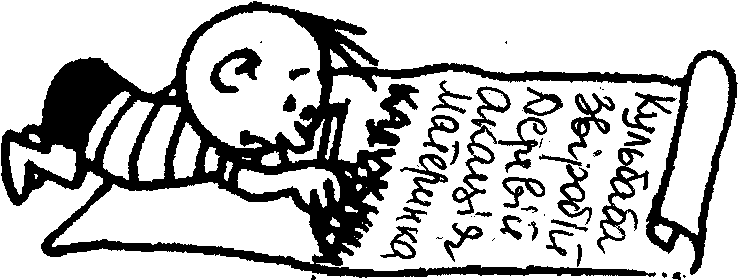 Кульбаба
Звіробій
Деревій
Акація
Материнка